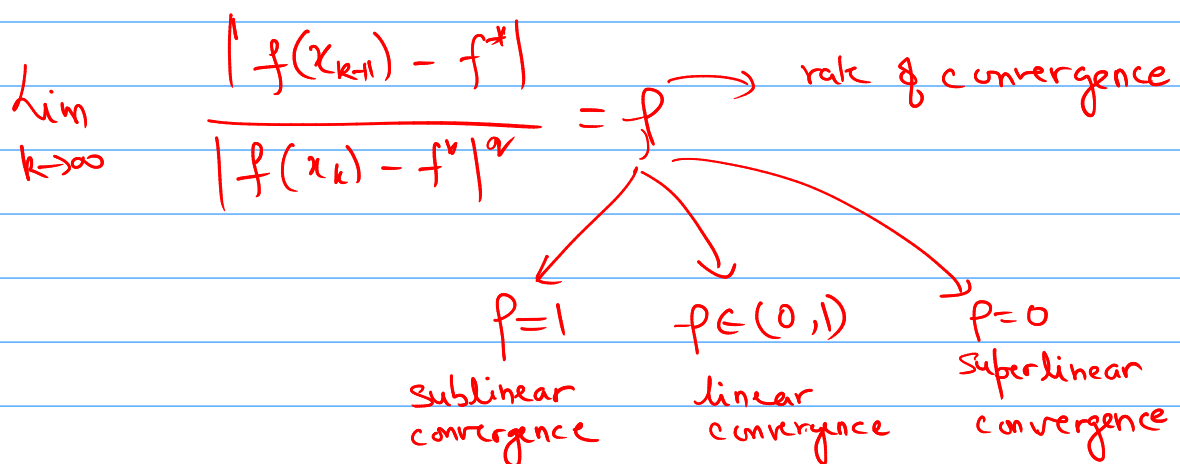 Lim k→∞ |f(x_{k+1}) - f*| / |f(x_k) - f*|^q = ρ → rate of convergence
ρ=1 ρ∈(0,1) ρ=0
sublinear convergence
linear convergence
superlinear convergence